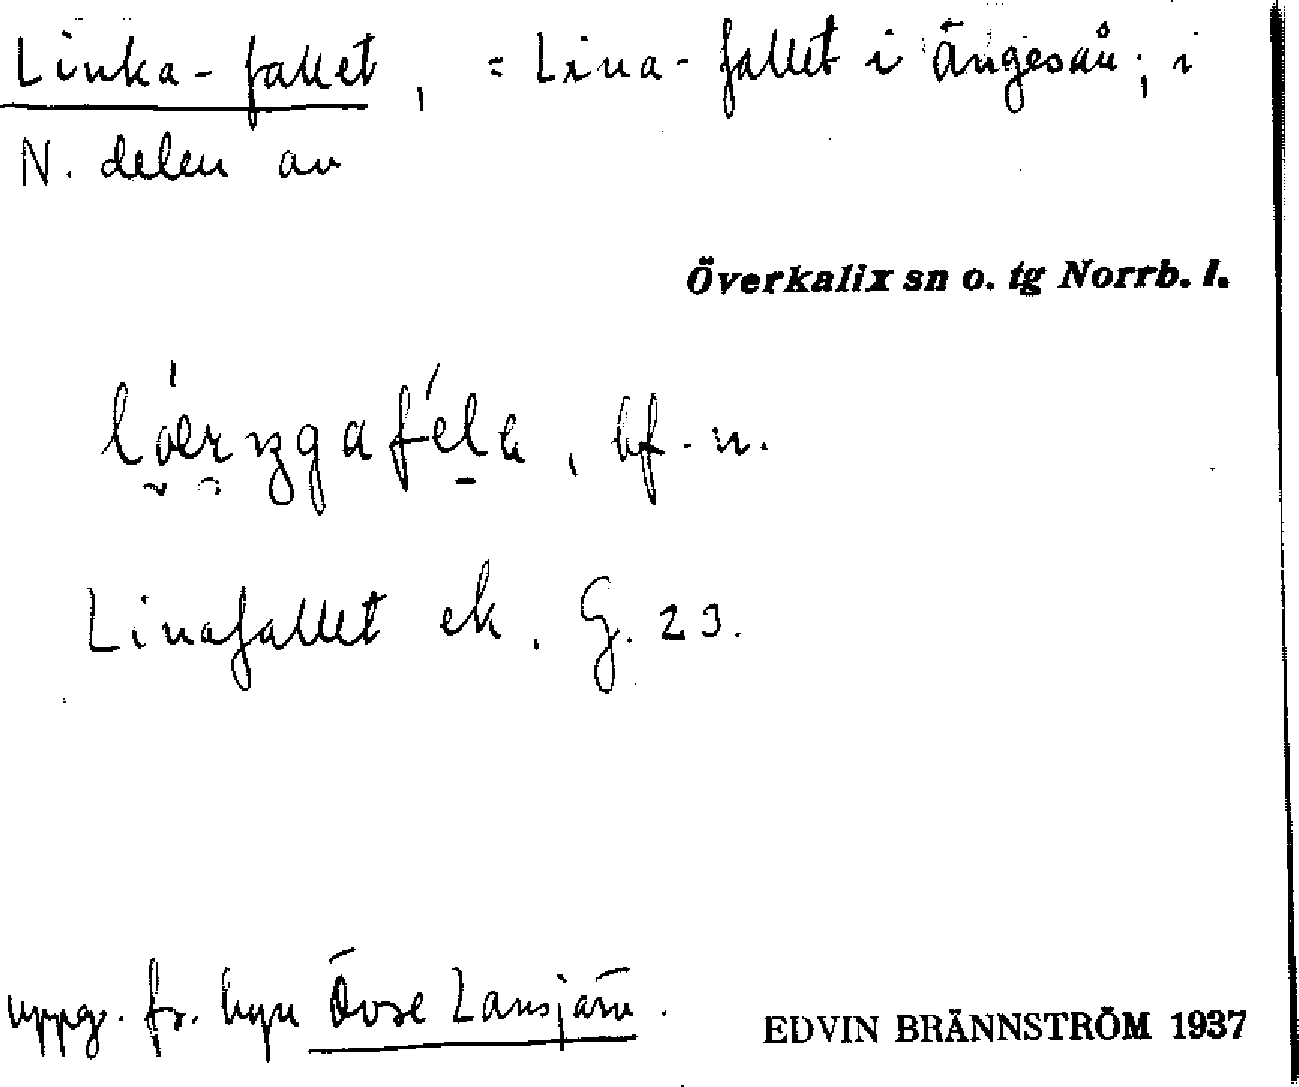 Linka-fallet, = Lina-fallet i Ängesån; i
N. delen av
Överkalix sn o. tg Norrb. l.
bf. n.
Linafallet ek. G. 23.
uppg. fr. byn Övre Lansjärv.
EDVIN BRÄNNSTRÖM 1937